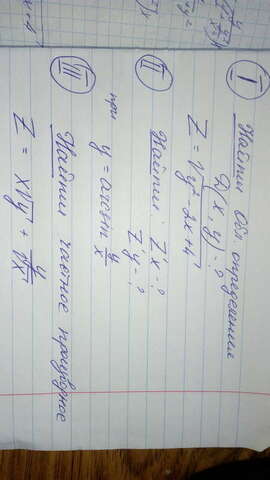 I Найти обл. определения
D(x, y) - ?
Z = √y² - 2x + 4
II Найти: Z'x - ?
Z'y - ?
при y = arcsin y/x
III Найти частное производное
Z = x√y + y/√x